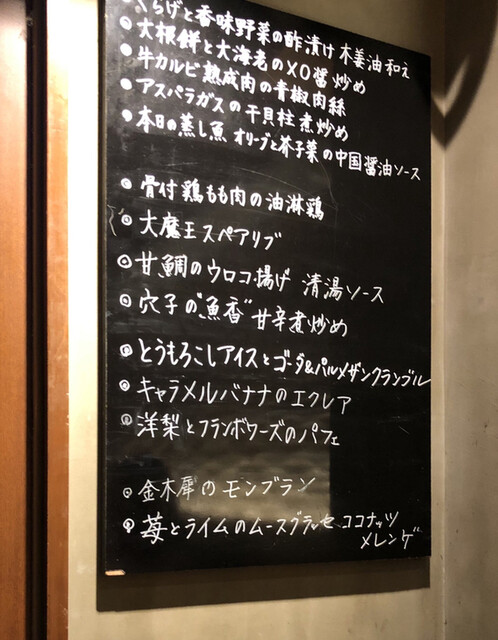 くらげと香味野菜の酢漬け 木姜油和え
大根餅と大海老のXO醤炒め
牛カルビ熟成肉の青椒肉絲
アスパラガスの干貝柱煮炒め
本日の蒸し魚 オリーブと芥子菜の中国醤油ソース
骨付鶏もも肉の油淋鶏
大魔王スペアリブ
甘鯛のウロコ揚げ 清湯ソース
穴子の"魚香"甘辛煮炒め
とうもろこしアイスとゴーダ&パルメザンクランブル
キャラメルバナナのエクレア
洋梨とフランボワーズのパフェ
金木犀のモンブラン
苺とライムのムースグラッセ ココナッツ
メレンゲ